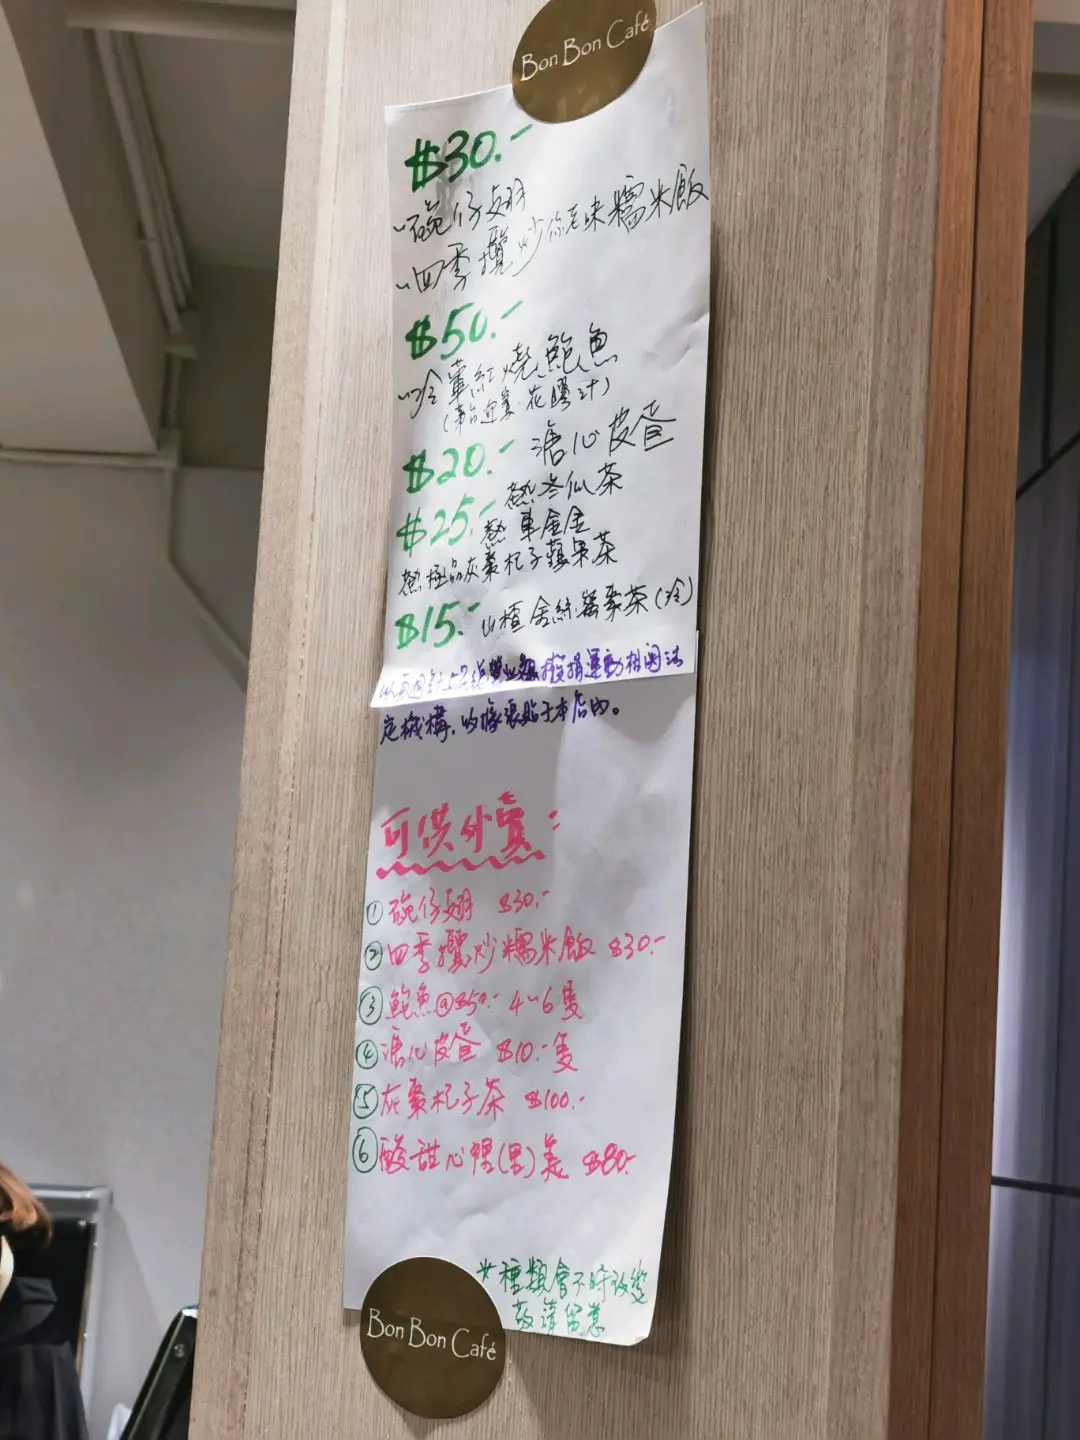 Bon Bon Café
$30.-
碗仔翅
四季欖炒你老味糯米飯
$50.-
冷葷紅燒鮑魚
花膠汁)
$20.- 溏心皮蛋
熱冬瓜茶
$25.- 熱 車金金
熱極品灰棗杞子蘋果茶
$15.- 山楂金絲蜜棗茶(冷)
運動相關法
定機構,的據張貼于本店內。
可供外賣:
① 碗仔翅 $30.-
② 四季欖炒糯米飯 $30.-
③ 鮑魚@$50.- 4~6隻
④ 溏心皮蛋 $10.-隻
⑤ 灰棗杞子茶 $100.-
⑥ 酸甜心裡(里)美 $80.-
*種類會不時改變
敬請留意
Bon Bon Café